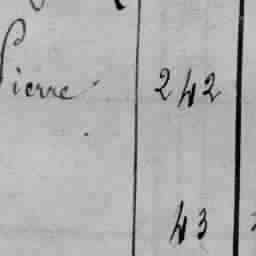 Pierre 242
43